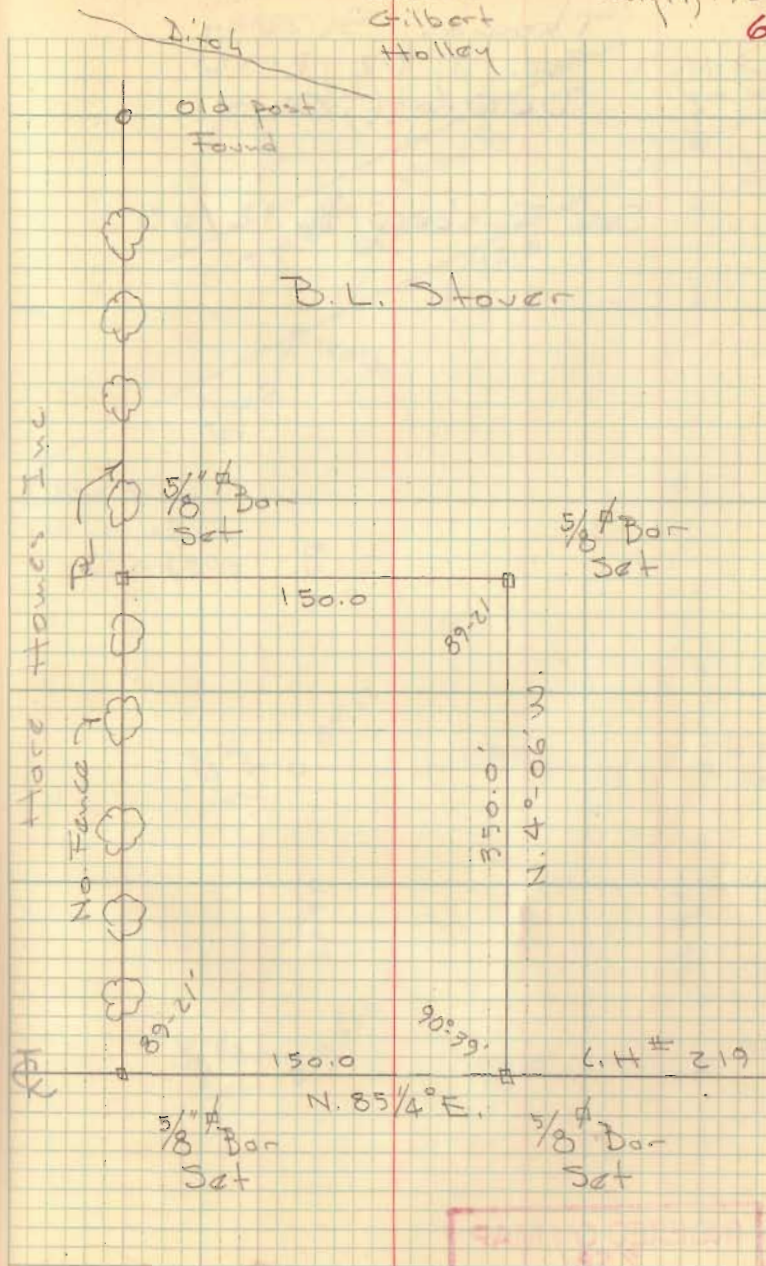 Ditch
Gilbert
Holley
6
old post
Found
B.L. Stover
Hare Homes Inc
5/8" ⌀ Bar
Set
5/8 ⌀ Bar
Set
150.0
89-21
350.0'
N. 4°-06' W.
No Fence
89-21'
90°39'
150.0
N. 85 1/4° E.
C.H # 219
5/8" ⌀ Bar
Set
5/8 ⌀ Bar
Set